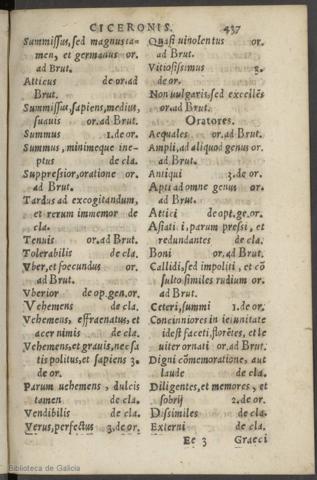 CICERONIS. 437
Summissus, sed magnus ta-
men, et germanus or.
ad Brut.
Atticus de or. ad
Brut.
Summissus, sapiens, medius,
suavis or. ad Brut.
Summus 1. de or.
Summus, minimeque ine-
ptus de cla.
Suppressior, oratione or.
ad Brut.
Tardus ad excogitandum,
et rerum immemor de
cla.
Tenuis or. ad Brut.
Tolerabilis de cla.
Vber, et foecundus or.
ad Brut.
Vberior de op. gen. or.
Vehemens de cla.
Vehemens, effraenatus, et
acer nimis de cla.
Vehemens, et gravis, nec sa
tis politus, et sapiens 3.
de or.
Parum uehemens, dulcis
tamen de cla.
Vendibilis de cla.
Verus, perfectus 3. de or.
Quasi uinolentus or.
ad Brut.
Vitiosissimus 3.
de or.
Non uulgaris, sed excellẽs
or. ad Brut.
Oratores.
Aequales or. ad Brut.
Ampli, ad aliquod genus or.
ad Brut.
Antiqui 3. de or.
Apti ad omne genus or.
ad Brut.
Attici de opt. ge. or.
Asiati. i, parum pressi, et
redundantes de cla.
Boni or. ad Brut.
Callidi, sed impoliti, et cõ
sulto similes rudium or.
ad Brut.
Ceteri, summi 1. de or.
Concinniores in ieiunitate
idest faceti, florẽtes, et le
uiter ornati or. ad Brut.
Digni cõmemoratione, aut
laude de cla.
Diligentes, et memores, et
sobrij 2. de or.
Dissimiles de cla.
Externi de cla.
Ee 3 Graeci
Biblioteca de Galicia